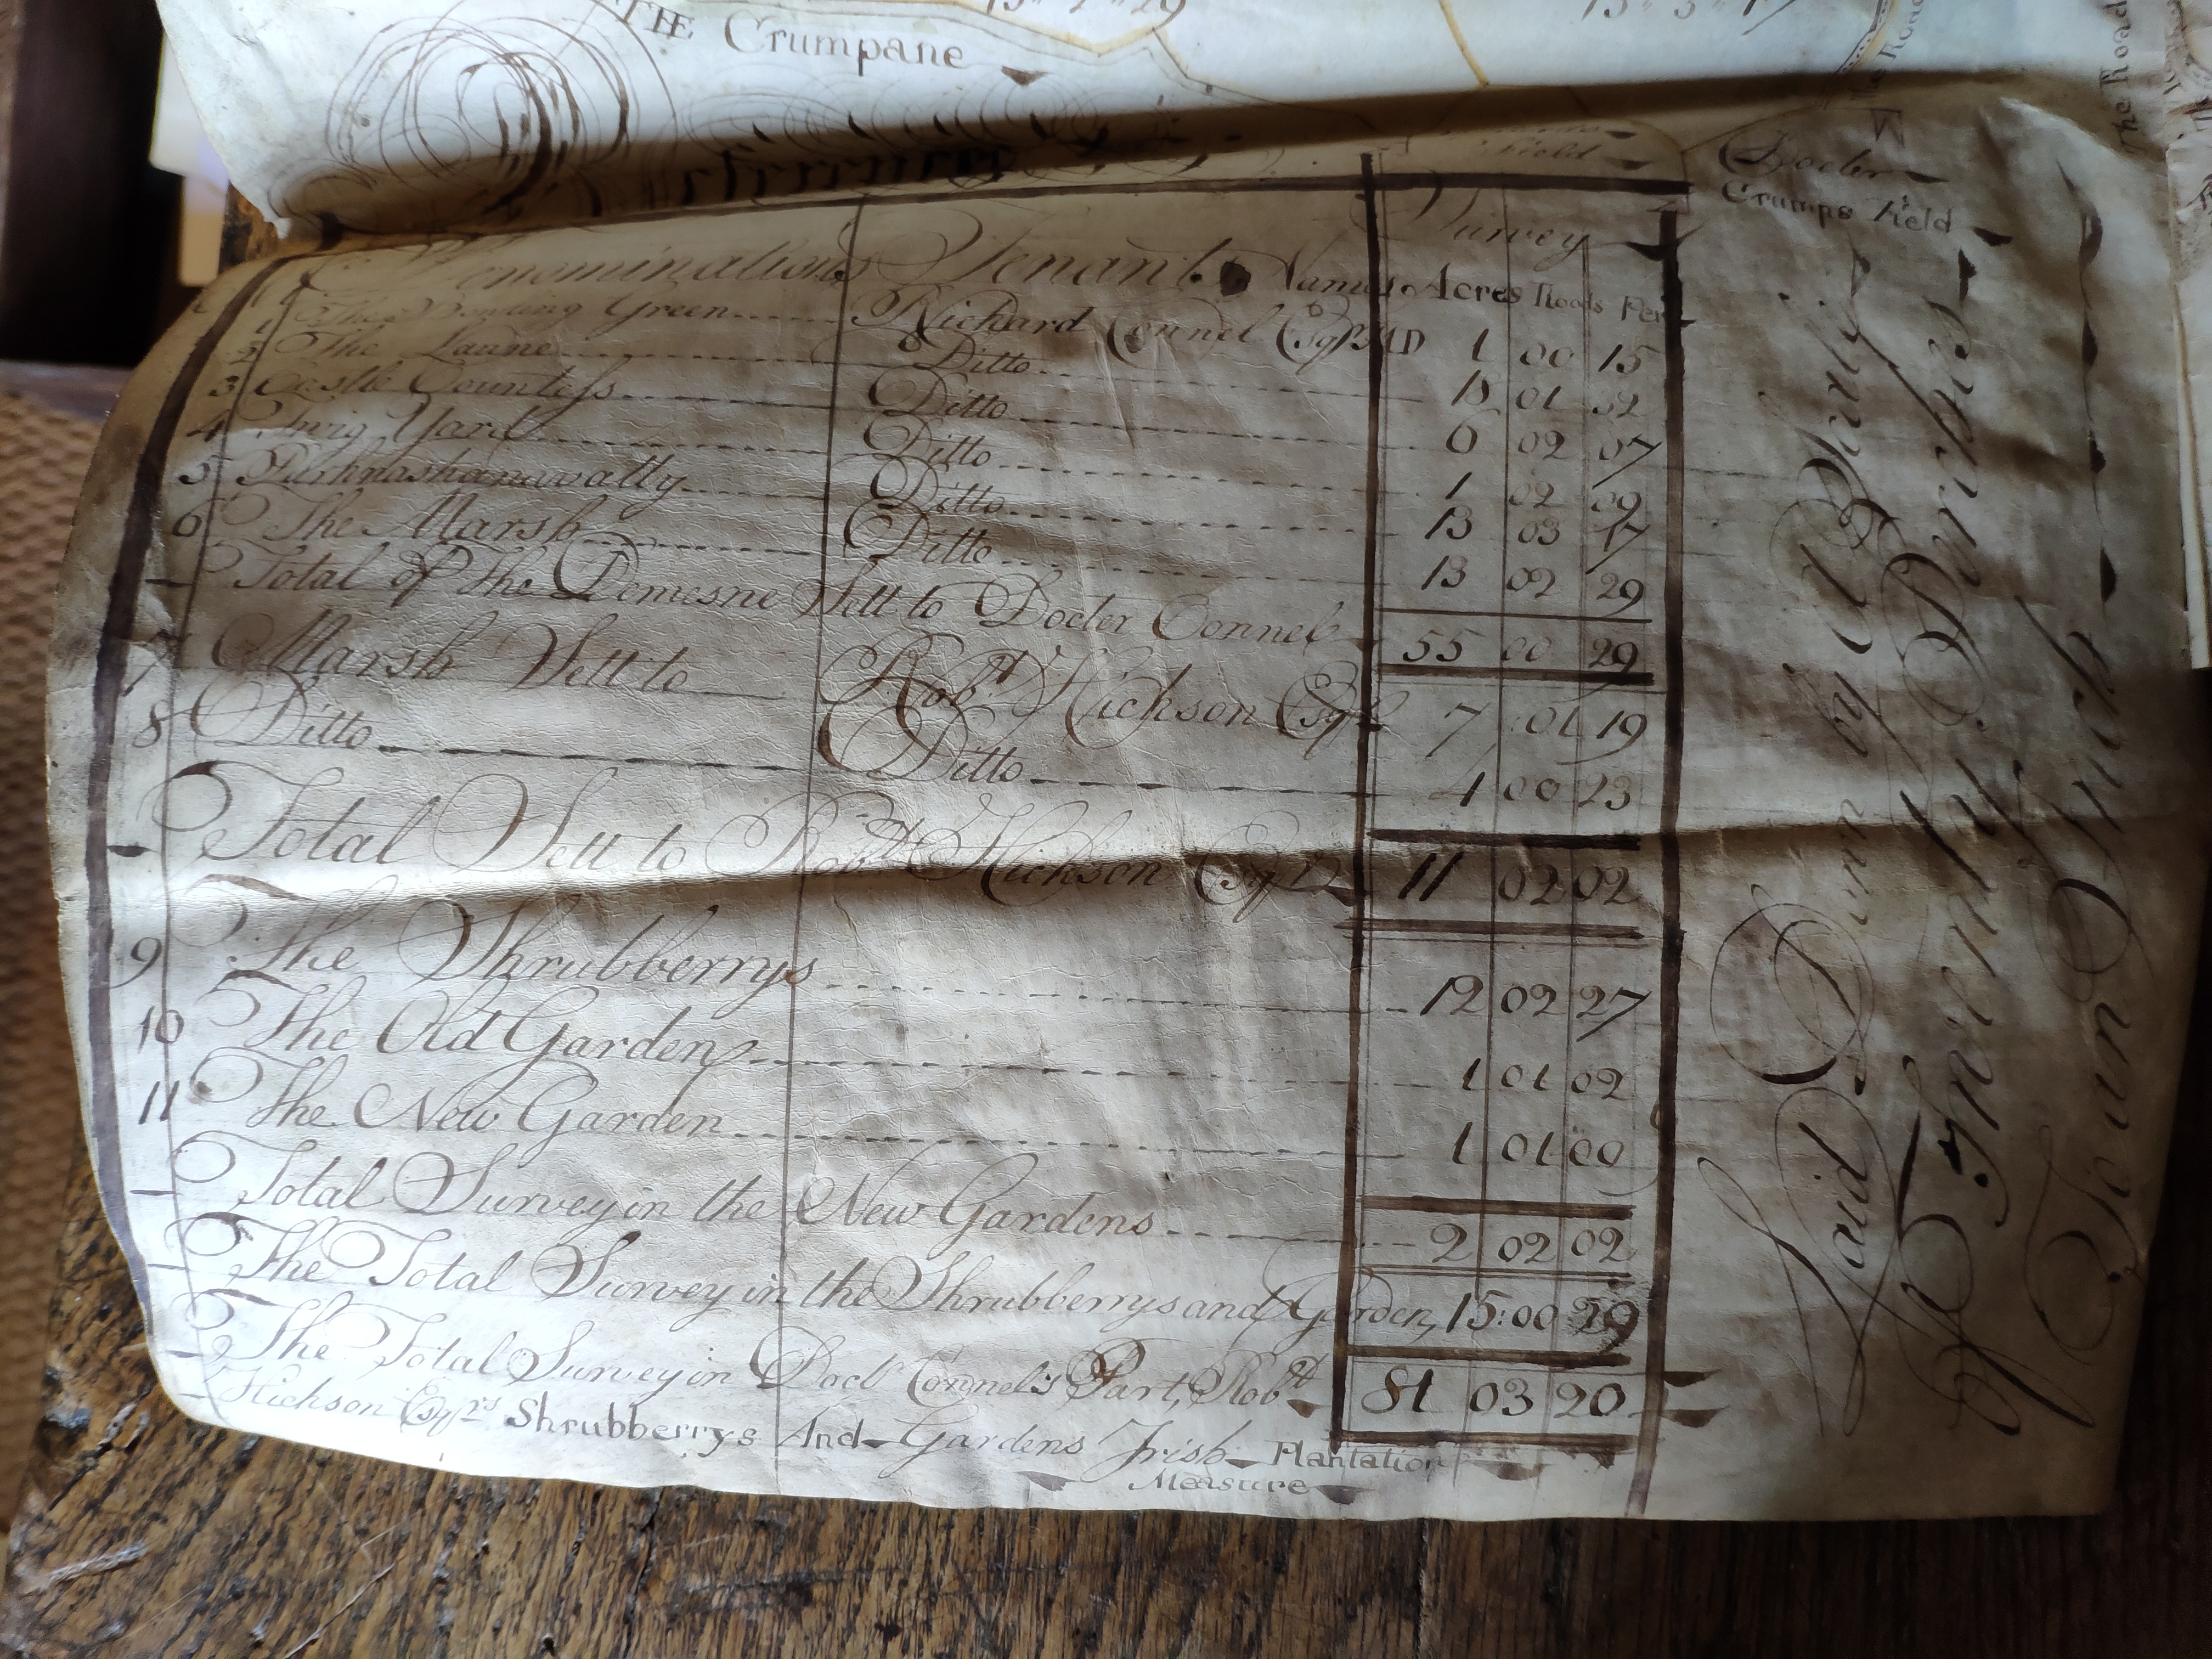 THE Crumpane
15 " 2 " 29
Reference
Docter
Crumps Field
The Road
The Road
Denominations Tenants Names Survey
Acres Roods Per
1 The Bowling Green Richard Connel Esqr MD 1 00 15
2 The Laune Ditto 01 32
3 Castle Countess Ditto 0 02 07
4 Twig Yard Ditto 1 02 09
5 Ditto 13 03 17
6 The Marsh Ditto 13 02 29
Total of the Demesne Sett to Docter Connel 55 00 29
7 Marsh Sett to Robt Hickson Esqr 7 01 19
8 Ditto Ditto 4 00 23
Total Sett to Robt Hickson Esqr 11 02 02
9 The Shrubberrys 12 02 27
10 The Old Garden 1 01 02
11 The New Garden 1 01 00
Total Survey in the New Gardens 2 02 02
The Total Survey in the Shrubberrys and Garden, 15:00 29
The Total Survey in Doctr Connel's Part, Robt 81 03 20
Hickson Esqrs Shrubberrys And Gardens Irish Plantation
Measure
Laid Down by a Scale
of Twenty Perches
to an Inch